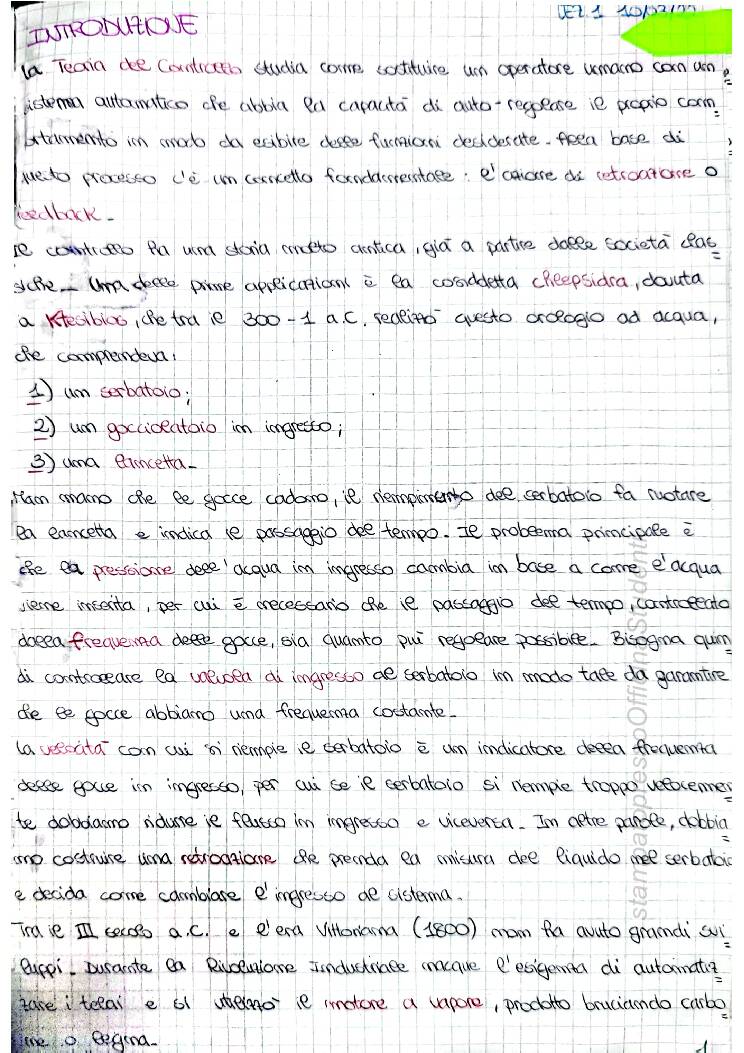 INTRODUZIONE
LEZ. 1 10/03/22
La Teoria del Controllo studia come sostituire un operatore umano con un
sistema automatico che abbia la capacità di auto-regolare il proprio com
portamento in modo da esibire delle funzioni desiderate. Alla base di
questo processo c'è un concetto fondamentale: l'azione di retroazione o
feedback.
Il controllo ha una storia molto antica, già a partire dalle società clas
siche. Una delle prime applicazioni è la cosiddetta cleepsidra, dovuta
a Ktesibios, che tra il 300-1 a.C. realizzò questo orologio ad acqua,
che comprendeva:
1) un serbatoio;
2) un gocciolatoio in ingresso;
3) una lancetta.
Man mano che le gocce cadono, il riempimento del serbatoio fa ruotare
la lancetta e indica il passaggio del tempo. Il problema principale è
che la pressione dell'acqua in ingresso cambia in base a come l'acqua
viene inserita, per cui è necessario che il passaggio del tempo, controllato
dalla frequenza delle gocce, sia quanto più regolare possibile. Bisogna quin
di controllare la valvola di ingresso al serbatoio in modo tale da garantire
che le gocce abbiano una frequenza costante.
La velocità con cui si riempie il serbatoio è un indicatore della frequenza
delle gocce in ingresso, per cui se il serbatoio si riempie troppo velocemen
te dobbiamo ridurre il flusso in ingresso e viceversa. In altre parole, dobbia
mo costruire una retroazione che prenda la misura del liquido nel serbatoio
e decida come cambiare l'ingresso al sistema.
Tra il III secolo a.C. e l'era Vittoriana (1800) non ha avuto grandi svi
luppi. Durante la Rivoluzione Industriale nacque l'esigenza di automatiz
zare i telai e si utilizzò il motore a vapore, prodotto bruciando carbo
ne o legna.
1
stampa appressoOfficinaStudenti